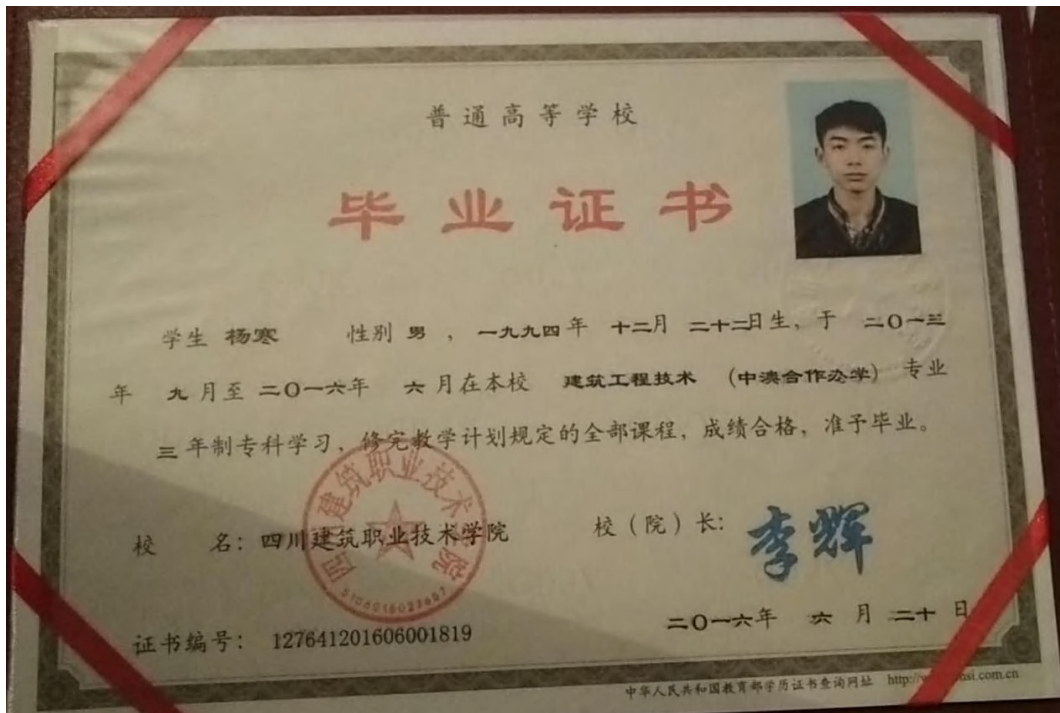 普通高等学校
毕业证书
学生 杨寒 性别 男 ，一九九四年 十二月 二十二日生，于 二〇一三
年 九月至 二〇一六年 六月在本校 建筑工程技术 （中澳合作办学）专业
三年制专科学习，修完教学计划规定的全部课程，成绩合格，准予毕业。
校 名：四川建筑职业技术学院 校（院）长：李辉
四川建筑职业技术学院
二〇一六年 六月 二十日
证书编号：127641201606001819
中华人民共和国教育部学历证书查询网址 http://
si.com.cn